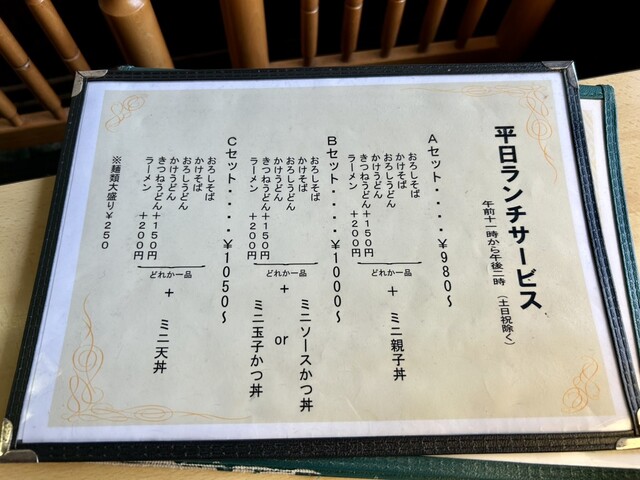 平日ランチサービス
午前十一時から午後二時（土日祝除く）
Aセット・・・・¥980～
おろしそば
かけそば
おろしうどん
かけうどん
きつねうどん+150円
ラーメン +200円
どれか一品
+
ミニ親子丼
Bセット・・・・¥1000～
おろしそば
かけそば
おろしうどん
かけうどん
きつねうどん+150円
ラーメン +200円
どれか一品
+
ミニソースかつ丼
or
ミニ玉子かつ丼
Cセット・・・・¥1050～
おろしそば
かけそば
おろしうどん
かけうどん
きつねうどん+150円
ラーメン +200円
どれか一品
+
ミニ天丼
※麺類大盛り¥250